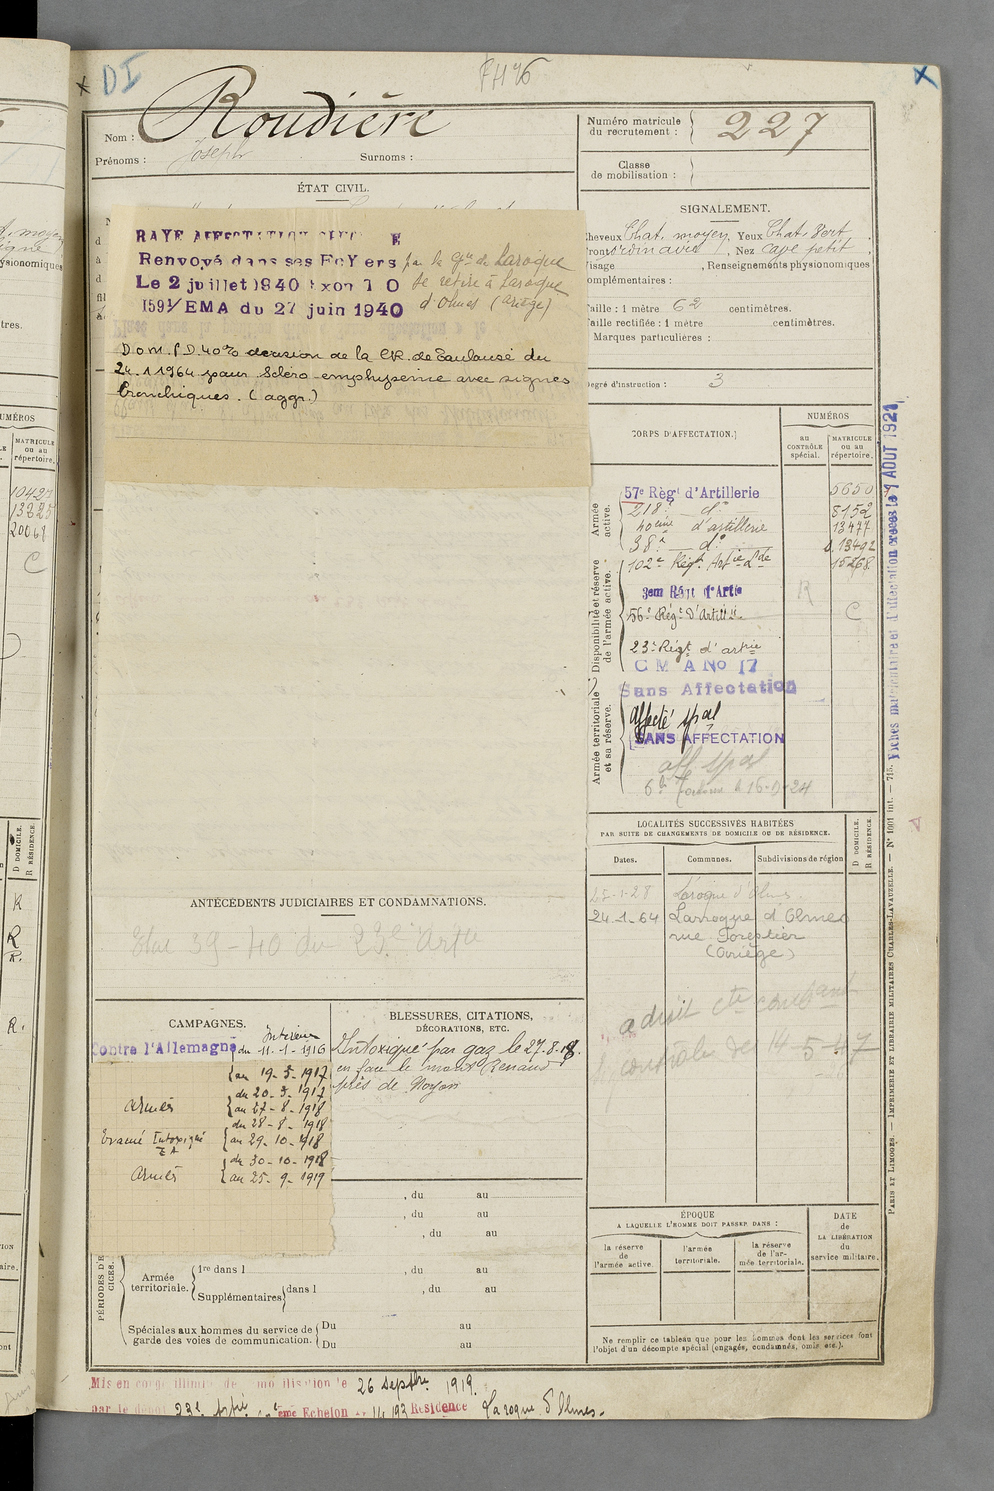 DI
Numéro matricule
du recrutement :
227
Nom : Roudière
Prénoms : Joseph
Surnoms :
Classe
de mobilisation :
ÉTAT CIVIL.
SIGNALEMENT.
Cheveux Chat. moyen, Yeux Chat. Vert
Front ordinaire, Nez cave petit
Visage , Renseignements physionomiques
complémentaires :
Taille : 1 mètre 62 centimètres.
Taille rectifiée : 1 mètre centimètres.
Marques particulières :
Degré d'instruction : 3
RAYE AFFECTATION
Renvoyé dans ses FoYers par la Gie de Laroque
Le 2 juillet 1940 se retire à Laroque
1591/EMA du 27 juin 1940 d'Olmes (Ariège)
Dom. P.D. 40% décision de la CR. de Toulouse du
24.1.1964 pour Scléro-emphysème avec signes
bronchiques. (aggr.)
CORPS D'AFFECTATION.
NUMÉROS
au
CONTRÔLE
spécial.
MATRICULE
ou au
répertoire.
Armée
active.
57e Régt d'Artillerie 5650
218e do 8152
40ème d'artillerie 13477
38e do 13492
Disponibilité et réserve
de l'armée active.
102e Régt Artie Lde 15268
3em Régt d'Artie R
56e Régt d'Artillie C
23e Régt d'artie
C M A No 17
Sans Affectation
Armée territoriale
et sa réserve.
affecté spal
SANS AFFECTATION
aff spal
Fiches matriculaire et d'affectation créées le 1 AOUT 1921
LOCALITÉS SUCCESSIVES HABITÉES
PAR SUITE DE CHANGEMENTS DE DOMICILE OU DE RÉSIDENCE.
Dates.
Communes.
Subdivisions de région
D DOMICILE.
R RÉSIDENCE.
25-1-28 Laroque d'Olmes
24.1.64 Larroque d'Olmes
rue Forestier
(Ariège)
a droit cte combant
contrôle des 14-5-47
ANTÉCÉDENTS JUDICIAIRES ET CONDAMNATIONS.
Etat 39-40 du 23e Artie
CAMPAGNES.
Contre l'Allemagne
Intérieur
du 11-1-1916
au 19-5-1917
Armées
du 20-5-1917
au 27-8-1918
Evacué Intoxiqué
du 28-8-1918
au 29-10-1918
Armées
du 30-10-1918
au 25-9-1919
BLESSURES, CITATIONS,
DÉCORATIONS, ETC.
Intoxiqué par gaz le 27-8-18.
en face le mont Renaud
près de Noyon
, du au
, du au
, du au
Armée
territoriale.
1re dans l , du au
Supplémentaires dans l , du au
Spéciales aux hommes du service de
garde des voies de communication.
Du au
Du au
ÉPOQUE
A LAQUELLE L'HOMME DOIT PASSER DANS :
la réserve
de
l'armée active.
l'armée
territoriale.
la réserve
de l'ar-
mée territoriale.
DATE
de
LA LIBÉRATION
du
service militaire.
Ne remplir ce tableau que pour les hommes dont les services font
l'objet d'un décompte spécial (engagés, condamnés, omis etc.).
PARIS ET LIMOGES. — IMPRIMERIE ET LIBRAIRIE MILITAIRES CHARLES-LAVAUZELLE. — N° 1001 int. — 715.
Mis en congé illimité de démobilisation le 26 septbre 1919.
par le dépôt 23e Artie Echelon Résidence Laroque d'Olmes.